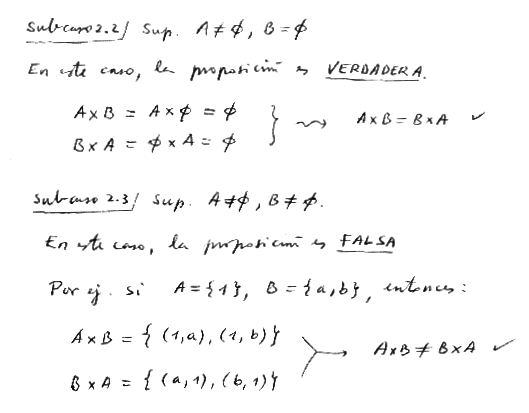 Subcaso 2.2/ Sup. A ≠ ∅, B = ∅
En este caso, la proposición es VERDADERA.
A×B = A×∅ = ∅
B×A = ∅×A = ∅ } ⇝ A×B = B×A ✓
Subcaso 2.3/ Sup. A ≠ ∅, B ≠ ∅.
En este caso, la proposición es FALSA
Por ej. si A = {1}, B = {a,b}, entonces:
A×B = { (1,a), (1,b)}
B×A = { (a,1), (b,1)} → A×B ≠ B×A ✓